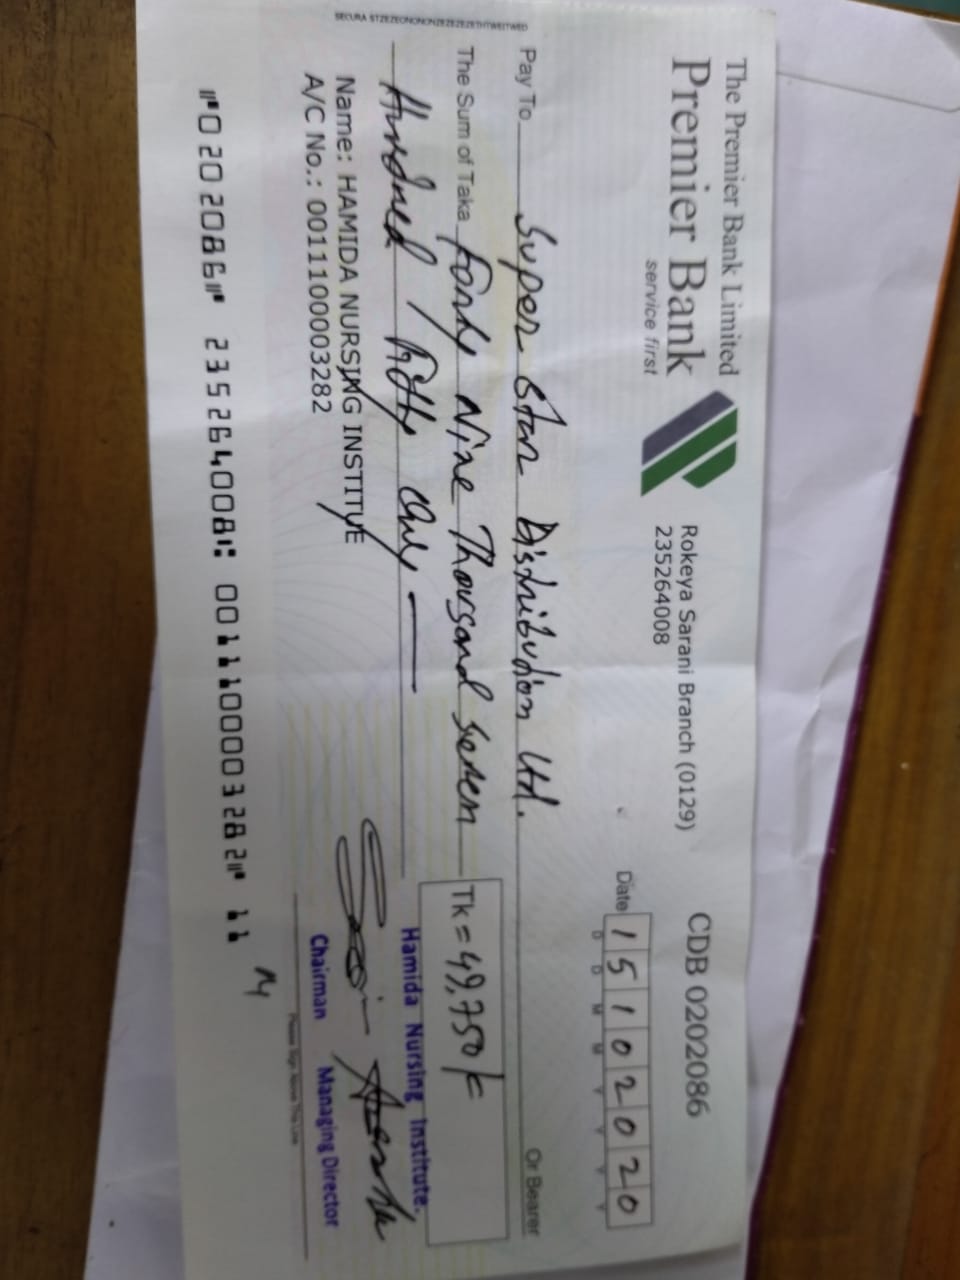 The Premier Bank Limited
Premier Bank
service first
Rokeya Sarani Branch (0129)
235264008
CDB 0202086
Date 15102020
D D M M Y Y Y Y
Pay To Super Star Distribution Ltd. Or Bearer
The Sum of Taka Forty Nine Thousand Seven
Hundred Fifty only
Tk = 49,750/=
Name: HAMIDA NURSING INSTITUE
A/C No.: 0011100003282
Hamida Nursing Institute.
Chairman Managing Director
Please Sign Above This Line
⑈0202086⑈ 235264008⑆ 0011100003282⑈ 11